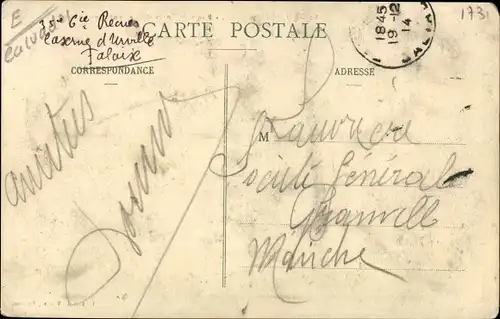 E
Calvados
35e Cie Rennes
Caserne d'Urville
Falaise
CARTE POSTALE
1845
19-12
14
1731
CORRESPONDANCE
ADRESSE
Amitiés
M
Société Générale
Granville
Manche